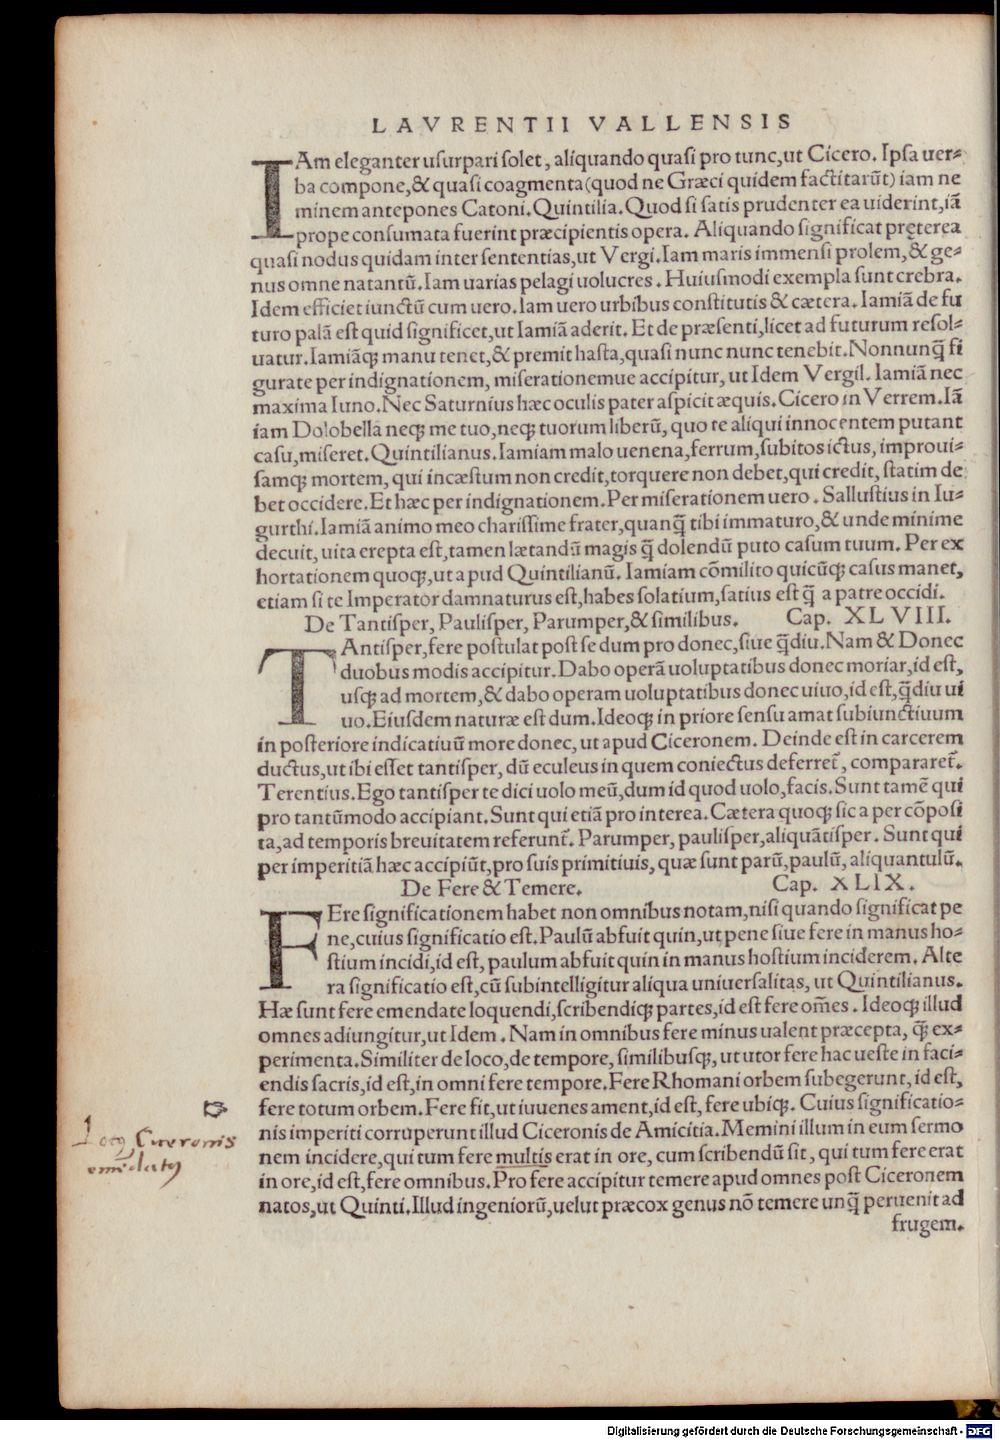 LAVRENTII VALLENSIS
IAm eleganter usurpari solet, aliquando quasi pro tunc, ut Cicero. Ipsa uer-
ba compone, & quasi coagmenta (quod ne Græci quidem factitarũt) iam ne
minem antepones Catoni. Quintilia. Quod si satis prudenter ea uiderint, iã
prope consumata fuerint præcipientis opera. Aliquando significat pręterea
quasi nodus quidam inter sententias, ut Vergi. Iam maris immensi prolem, & ge-
nus omne natantũ. Iam uarias pelagi uolucres. Huiusmodi exempla sunt crebra.
Idem efficiet iunctũ cum uero. Iam uero urbibus constitutis & cætera. Iamiã de fu
turo palã est quid significet, ut Iamiã aderit. Et de præsenti, licet ad futurum resol-
uatur. Iamiãq; manu tenet, & premit hasta, quasi nunc nunc tenebit. Nonnunq̃ fi
gurate per indignationem, miserationemue accipitur, ut Idem Vergil. Iamiã nec
maxima Iuno. Nec Saturnius hæc oculis pater aspicit æquis. Cicero in Verrem. Iã
iam Dolobella neq; me tuo, neq; tuorum liberũ, quo te aliqui innocentem putant
casu, miseret. Quintilianus. Iamiam malo uenena, ferrum, subitos ictus, improui-
samq; mortem, qui incæstum non credit, torquere non debet, qui credit, statim de
bet occidere. Et hæc per indignationem. Per miserationem uero. Sallustius in Iu-
gurthi. Iamiã animo meo charissime frater, quanq̃ tibi immaturo, & unde minime
decuit, uita erepta est, tamen lætandũ magis q̃ dolendũ puto casum tuum. Per ex
hortationem quoq;, ut apud Quintilianũ. Iamiam cõmilito quicũq; casus manet,
etiam si te Imperator damnaturus est, habes solatium, satius est q̃ a patre occidi.
De Tantisper, Paulisper, Parumper, & similibus. Cap. XLVIII.
TAntisper, fere postulat post se dum pro donec, siue q̃diu. Nam & Donec
duobus modis accipitur. Dabo operã uoluptatibus donec moriar, id est,
usq; ad mortem, & dabo operam uoluptatibus donec uiuo, id est, q̃diu ui
uo. Eiusdem naturæ est dum. Ideoq; in priore sensu amat subiunctiuum
in posteriore indicatiuũ more donec, ut apud Ciceronem. Deinde est in carcerem
ductus, ut ibi esset tantisper, dũ eculeus in quem coniectus deferret̃, compararet̃.
Terentius. Ego tantisper te dici uolo meũ, dum id quod uolo, facis. Sunt tamẽ qui
pro tantũmodo accipiant. Sunt qui etiã pro interea. Cætera quoq; sic a per cõposi
ta, ad temporis breuitatem referunt̃. Parumper, paulisper, aliquãtisper. Sunt qui
per imperitiã hæc accipiũt, pro suis primitiuis, quæ sunt parũ, paulũ, aliquantulũ.
De Fere & Temere. Cap. XLIX.
FEre significationem habet non omnibus notam, nisi quando significat pe
ne, cuius significatio est. Paulũ abfuit quin, ut pene siue fere in manus ho-
stium incidi, id est, paulum abfuit quin in manus hostium inciderem. Alte
ra significatio est, cũ subintelligitur aliqua uniuersalitas, ut Quintilianus.
Hæ sunt fere emendate loquendi, scribendiq; partes, id est fere om̃es. Ideoq; illud
omnes adiungitur, ut Idem. Nam in omnibus fere minus ualent præcepta, q̃; ex-
perimenta. Similiter de loco, de tempore, similibusq;, ut utor fere hac ueste in faci-
endis sacris, id est, in omni fere tempore. Fere Rhomani orbem subegerunt, id est,
fere totum orbem. Fere fit, ut iuuenes ament, id est, fere ubiq;. Cuius significatio-
nis imperiti corruperunt illud Ciceronis de Amicitia. Memini illum in eum sermo
nem incidere, qui tum fere multis erat in ore, cum scribendũ sit, qui tum fere erat
in ore, id est, fere omnibus. Pro fere accipitur temere apud omnes post Ciceronem
natos, ut Quinti. Illud ingeniorũ, uelut præcox genus nõ temere unq̃ peruenit ad
frugem.
Locꝰ Ciceronis
emẽdatꝰ
Digitalisierung gefördert durch die Deutsche Forschungsgemeinschaft - DFG